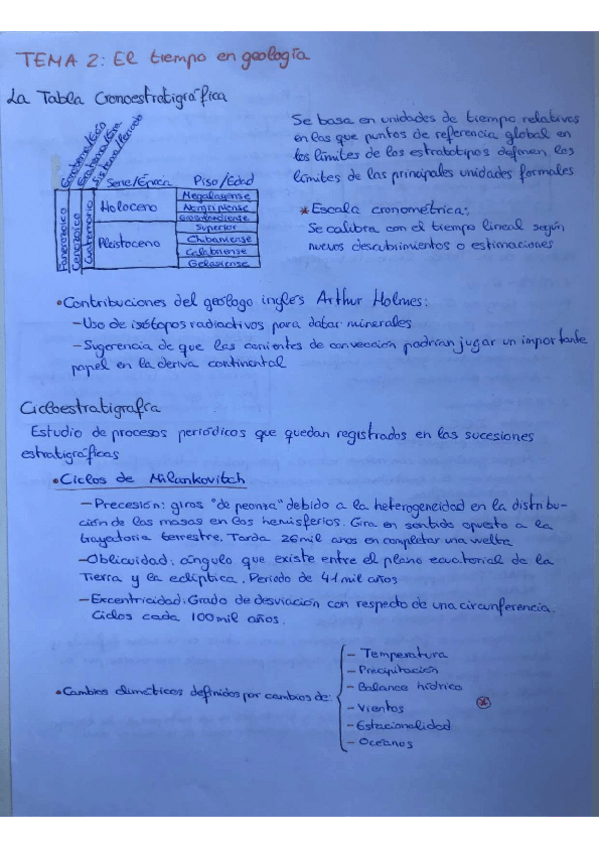 TEMA 2: El tiempo en geología
La Tabla Cronoestratigráfica
Eonotema/Eón
Eratema/Era
Sistema/Período
Serie/Época
Piso/Edad
Fanerozoico
Cenozoico
Cuaternario
Holoceno
Pleistoceno
Megalayense
Norgripiense
Groenlandiense
Superior
Chibaniense
Calabriense
Gelasiense
Se basa en unidades de tiempo relativos
en las que puntos de referencia global en
los límites de los estratotipos definen, los
límites de las principales unidades formales
* Escala cronométrica:
Se calibra con el tiempo lineal según
nuevos descubrimientos o estimaciones
•Contribuciones del geólogo inglés Arthur Holmes:
-Uso de isótopos radiactivos para datar minerales
-Sugerencia de que las corrientes de convección podrían jugar un importante
papel en la deriva continental
Cicloestratigrafía
Estudio de procesos periódicos que quedan registrados en las sucesiones
estratigráficas
•Ciclos de Milankovitch
-Precesión: giros "de peonza" debido a la heterogeneidad en la distribu-
ción de las masas en los hemisferios. Gira en sentido opuesto a la
trayectoria terrestre. Tarda 26 mil años en completar una vuelta
-Oblicuidad: ángulo que existe entre el plano ecuatorial de la
Tierra y la eclíptica. Periodo de 41 mil años
-Excentricidad: Grado de desviación con respecto de una circunferencia.
Ciclos cada 100 mil años.
•Cambios climáticos definidos por cambios de:
- Temperatura
- Precipitación
- Balance hídrico
- Vientos
- Estacionalidad
- Océanos
*